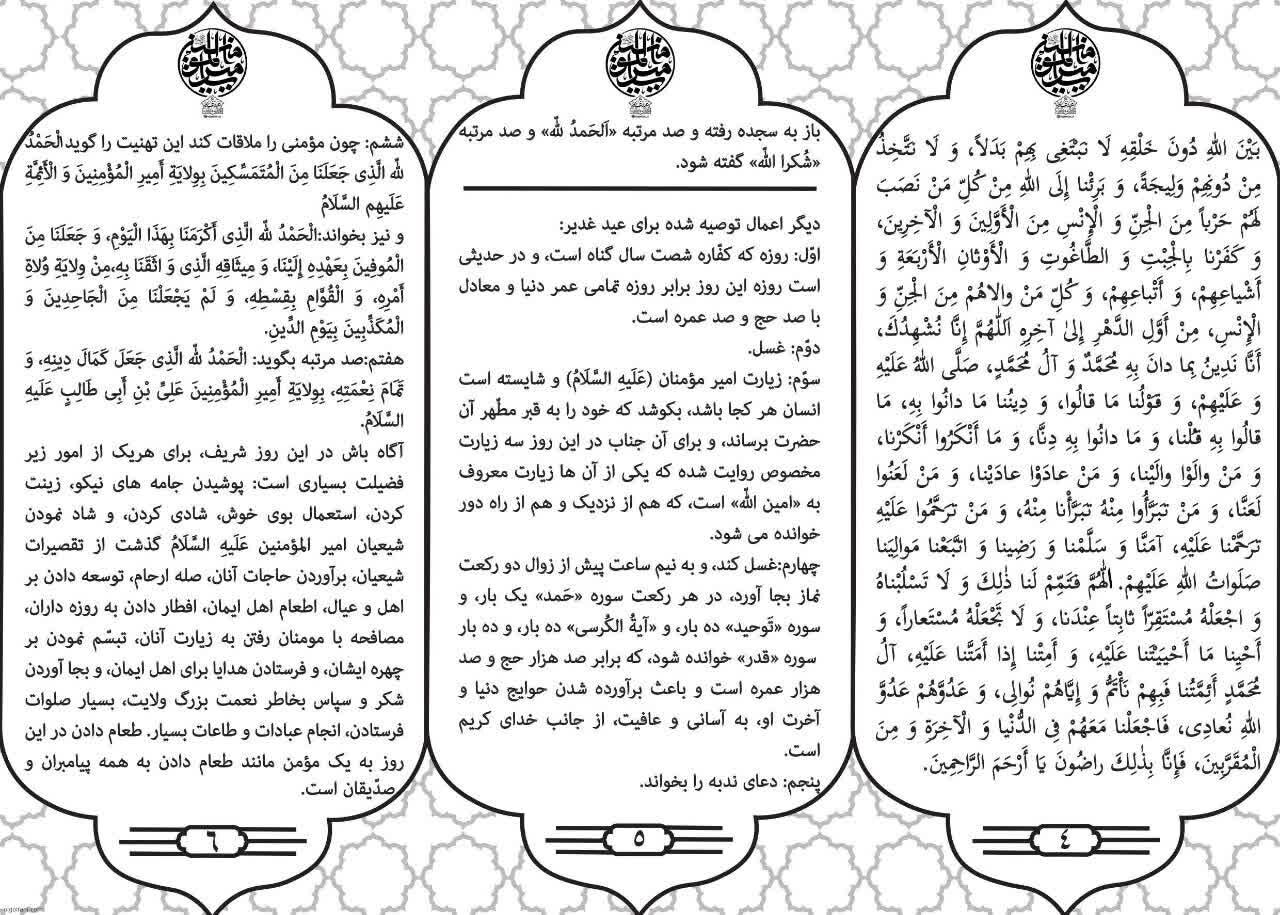 بَيْنَ اللهِ دُونَ خَلْقِهِ لَا نَبْتَغِى بِهِمْ بَدَلاً، وَ لَا نَتَّخِذُ
مِنْ دُونِهِمْ وَلِيجَةً، وَ بَرِئْنا إِلَى اللهِ مِنْ كُلِّ مَنْ نَصَبَ
لَهُمْ حَرْباً مِنَ الْجِنِّ وَ الْإِنْسِ مِنَ الْأَوَّلِينَ وَ الْآخِرِينَ،
وَ كَفَرْنا بِالْجِبْتِ وَ الطَّاغُوتِ وَ الْأَوْثانِ الْأَرْبَعَةِ وَ
أَشْياعِهِمْ، وَ أَتْباعِهِمْ، وَ كُلِّ مَنْ والاهُمْ مِنَ الْجِنِّ وَ
الْإِنْسِ، مِنْ أَوَّلِ الدَّهْرِ إِلىٰ آخِرِهِ اَللّٰهُمَّ إِنَّا نُشْهِدُكَ،
أَنَّا نَدِينُ بِما دانَ بِهِ مُحَمَّدٌ وَ آلُ مُحَمَّدٍ، صَلَّى اللهُ عَلَيْهِ
وَ عَلَيْهِمْ، وَ قَوْلُنا مَا قالُوا، وَ دِينُنا مَا دانُوا بِهِ، مَا
قالُوا بِهِ قُلْنا، وَ مَا دانُوا بِهِ دِنَّا، وَ مَا أَنْكَرُوا أَنْكَرْنا،
وَ مَنْ والَوْا والَيْنا، وَ مَنْ عادَوْا عادَيْنا، وَ مَنْ لَعَنُوا
لَعَنَّا، وَ مَنْ تَبَرَّأُوا مِنْهُ تَبَرَّأْنا مِنْهُ، وَ مَنْ تَرَحَّمُوا عَلَيْهِ
تَرَحَّمْنا عَلَيْهِ، آمَنَّا وَ سَلَّمْنا وَ رَضِينا وَ اتَّبَعْنا مَوالِيَنا
صَلَواتُ اللهِ عَلَيْهِمْ. اللّٰهُمَّ فَتَمِّمْ لَنا ذٰلِكَ وَ لَا تَسْلُبْناهُ
وَ اجْعَلْهُ مُسْتَقِرّاً ثابِتاً عِنْدَنا، وَ لَا تَجْعَلْهُ مُسْتَعاراً، وَ
أَحْيِنا مَا أَحْيَيْتَنا عَلَيْهِ، وَ أَمِتْنا إِذا أَمَتَّنا عَلَيْهِ، آلُ
مُحَمَّدٍ أَئِمَّتُنا فَبِهِمْ نَأْتَمُّ وَ إِيَّاهُمْ نُوالِى، وَ عَدُوَّهُمْ عَدُوَّ
اللهِ نُعادِى، فَاجْعَلْنا مَعَهُمْ فِى الدُّنْيا وَ الْآخِرَةِ وَ مِنَ
الْمُقَرَّبِينَ، فَإِنَّا بِذٰلِكَ راضُونَ يَا أَرْحَمَ الرَّاحِمِينَ.
٤
باز به سجده رفته و صد مرتبه «اَلحَمدُ لله» و صد مرتبه
«شُکرا الله» گفته شود.
دیگر اعمال توصیه شده برای عید غدیر:
اوّل: روزه که کفّاره شصت سال گناه است، و در حدیثی
است روزه این روز برابر روزه تمامی عمر دنیا و معادل
با صد حج و صد عمره است.
دوّم: غسل.
سوّم: زیارت امیر مؤمنان (عَلَیهِ السَّلَامُ) و شایسته است
انسان هر کجا باشد، بکوشد که خود را به قبر مطّهر آن
حضرت برساند، و برای آن جناب در این روز سه زیارت
مخصوص روایت شده که یکی از آن ها زیارت معروف
به «امین الله» است، که هم از نزدیک و هم از راه دور
خوانده می شود.
چهارم:غسل کند، و به نیم ساعت پیش از زوال دو رکعت
نماز بجا آورد، در هر رکعت سوره «حَمد» یک بار، و
سوره «تَوحید» ده بار، و «آیةُ الکُرسی» ده بار، و ده بار
سوره «قدر» خوانده شود، که برابر صد هزار حج و صد
هزار عمره است و باعث برآورده شدن حوایج دنیا و
آخرت او، به آسانی و عافیت، از جانب خدای کریم
است.
پنجم: دعای ندبه را بخواند.
٥
ششم: چون مؤمنی را ملاقات کند این تهنیت را گوید:الْحَمْدُ
لله الَّذِى جَعَلَنَا مِنَ الْمُتَمَسِّكِينَ بِوِلايَةِ أَمِيرِ الْمُؤْمِنِينَ وَ الْأَئِمَّةِ
عَلَيهِم السَّلَامُ
و نیز بخواند:الْحَمْدُ لله الَّذِى أَكْرَمَنَا بِهَذَا الْيَوْمِ، وَ جَعَلَنَا مِنَ
الْمُوفِينَ بِعَهْدِهِ إِلَيْنَا، وَ مِيثَاقِهِ الَّذِى وَ اثَقَنَا بِهِ،مِنْ وِلايَةِ وُلاةِ
أَمْرِهِ، وَ الْقُوَّامِ بِقِسْطِهِ، وَ لَمْ يَجْعَلْنَا مِنَ الْجَاحِدِينَ وَ
الْمُكَذِّبِينَ بِيَوْمِ الدِّينِ.
هفتم:صد مرتبه بگوید: الْحَمْدُ لله الَّذِى جَعَلَ كَمَالَ دِينِهِ، وَ
تَمَامَ نِعْمَتِهِ، بِوِلايَةِ أَمِيرِ الْمُؤْمِنِينَ عَلِىِّ بْنِ أَبِى طَالِبٍ عَلَيهِ
السَّلَامُ.
آگاه باش در این روز شریف، برای هریک از امور زیر
فضیلت بسیاری است: پوشیدن جامه های نیکو، زینت
کردن، استعمال بوی خوش، شادی کردن، و شاد نمودن
شیعیان امیر المؤمنین عَلَیهِ السَّلَامُ گذشت از تقصیرات
شیعیان، برآوردن حاجات آنان، صله ارحام، توسعه دادن بر
اهل و عیال، اطعام اهل ایمان، افطار دادن به روزه داران،
مصافحه با مومنان رفتن به زیارت آنان، تبسّم نمودن بر
چهره ایشان، و فرستادن هدایا برای اهل ایمان، و بجا آوردن
شکر و سپاس بخاطر نعمت بزرگ ولایت، بسیار صلوات
فرستادن، انجام عبادات و طاعات بسیار. طعام دادن در این
روز به یک مؤمن مانند طعام دادن به همه پیامبران و
صدّیقان است.
٦